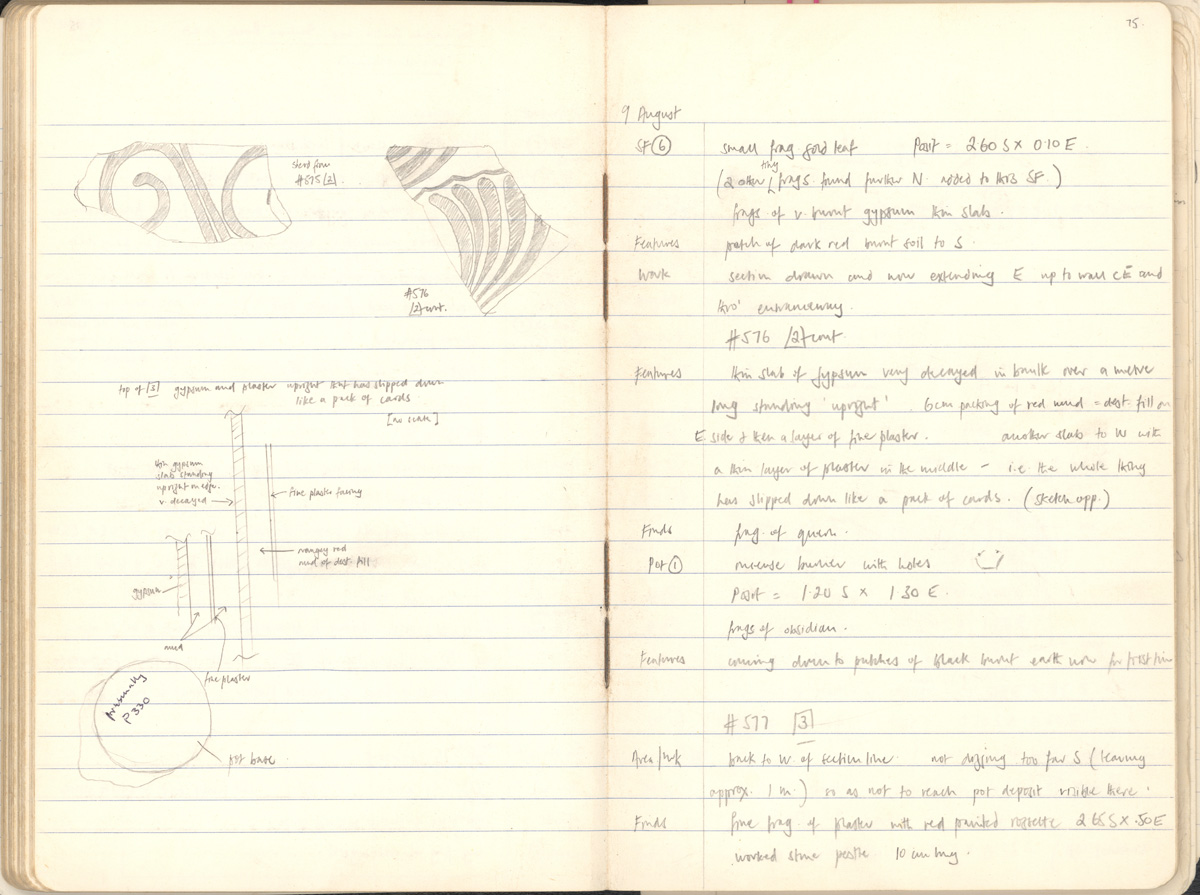 sherd from
#575 [2].
#576
[2] cont.
top of [3] gypsum and plaster upright that has slipped down
like a pack of cards.
[no scale]
thin gypsum
slab standing
upright
v. decayed
fine plaster facing
orangey red
mud of dest. fill
gypsum
mud
fine plaster
presumably
P 330
pot base.
75.
9 August
SF (6) small frag gold leaf Posit = 2.60 S X 0.10 E.
tiny
(2 other frags. found further N. added to this SF.)
frags. of v. burnt gypsum thin slab.
Features patch of dark red burnt soil to S.
Work section drawn and now extending E up to wall CE and
thro' entranceway.
#576 [2] cont.
Features thin slab of gypsum very decayed in baulk over a metre
long standing 'upright'. 6cm packing of red mud = dest. fill on
E. side & then a layer of fine plaster. another slab to W with
a thin layer of plaster in the middle – i.e. the whole thing
has slipped down like a pack of cards. (sketch opp.)
Finds frag. of quern.
Pot (1) incense burner with holes
Posit = 1.20 S x 1.30 E.
frags of obsidian.
Features coming down to patches of black burnt earth now for first time
#577 [3]
Area/Wk back to W. of section line. not digging too far S (leaving
approx. 1 m.) so as not to reach pot deposit visible there.
Finds fine frag. of plaster with red painted rosette 2.65 S X .50 E
worked stone pestle 10 cm long.